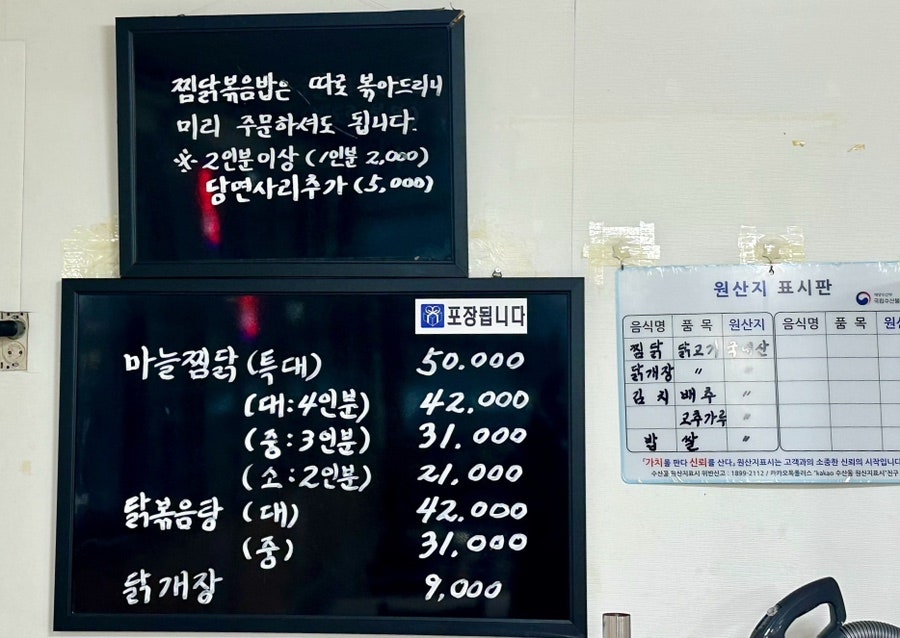 찜닭볶음밥은 따로 볶아드리니
미리 주문하셔도 됩니다.
※ 2인분 이상 (1인분 2,000)
당면사리추가 (5,000)
포장됩니다
마늘찜닭 (특대) 50.000
(대:4인분) 42.000
(중:3인분) 31.000
(소:2인분) 21.000
닭볶음탕 (대) 42.000
(중) 31.000
닭개장 9,000
원산지 표시판
음식명 품 목 원산지 음식명 품 목
찜 닭 닭고기 국내산
닭개장 〃 〃
김 치 배추 〃
고추가루 〃
밥 쌀 〃
「가치를 판다 신뢰를 산다」 원산지표시는 고객과의 소중한 신뢰의 시작입니다
수산물 원산지표시 위반신고 : 1899-2112 / 카카오톡플러스 "kakao 수산물 원산지표시"친구